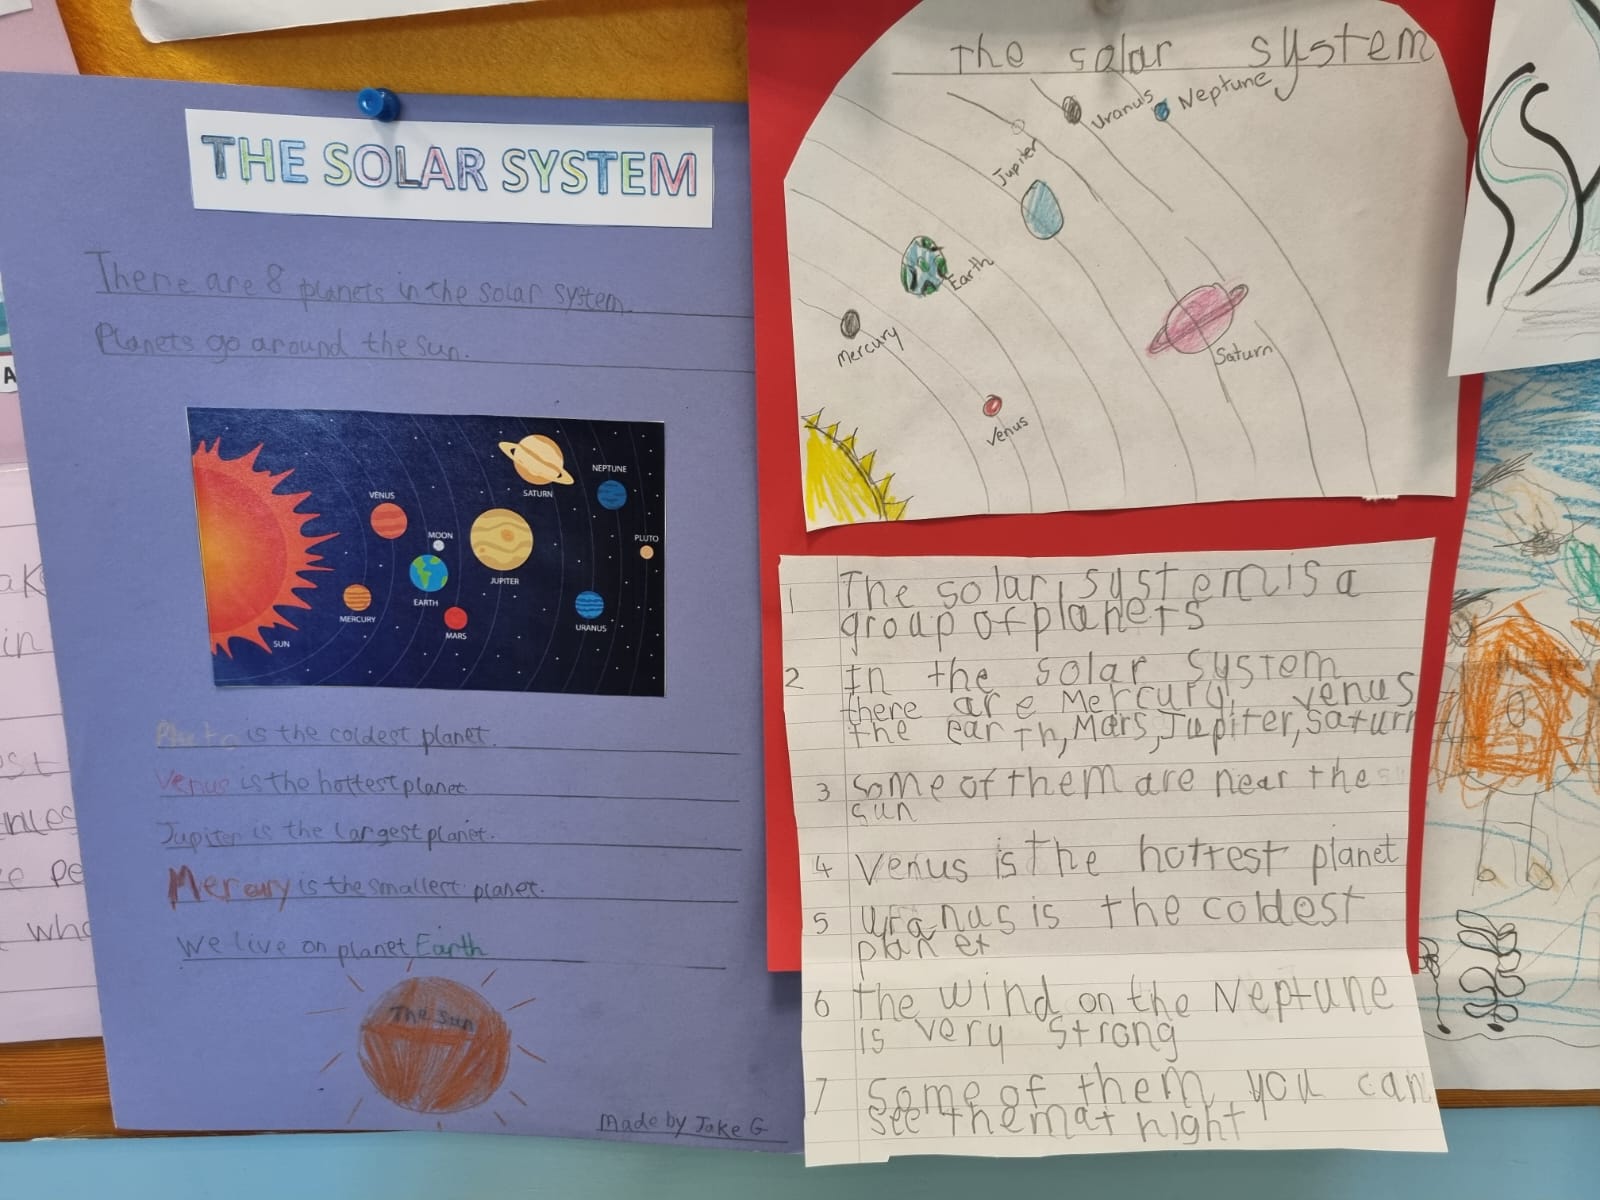 THE SOLAR SYSTEM
There are 8 planets in the solar system.
Planets go around the sun.
VENUS
SATURN
NEPTUNE
MOON
PLUTO
JUPITER
EARTH
MERCURY
MARS
URANUS
SUN
Pluto is the coldest planet.
Venus is the hottest planet
Jupiter is the largest planet.
Mercury is the smallest planet.
We live on planet Earth
The Sun
Made by Jake G
The solar system
Uranus
Neptune
Jupiter
Earth
Mercury
Saturn
Venus
1 The solar system is a
group of planets
2 In the solar system
there are Mercury, venus
the earth, Mars, Jupiter, Saturn
3 Some of them are near the
sun
4 Venus is the hottest planet
5 Uranus is the coldest
planet
6 The wind on the Neptune
is very strong
7 Some of them you can
see them at night
A
ak
in
st
e pe
who